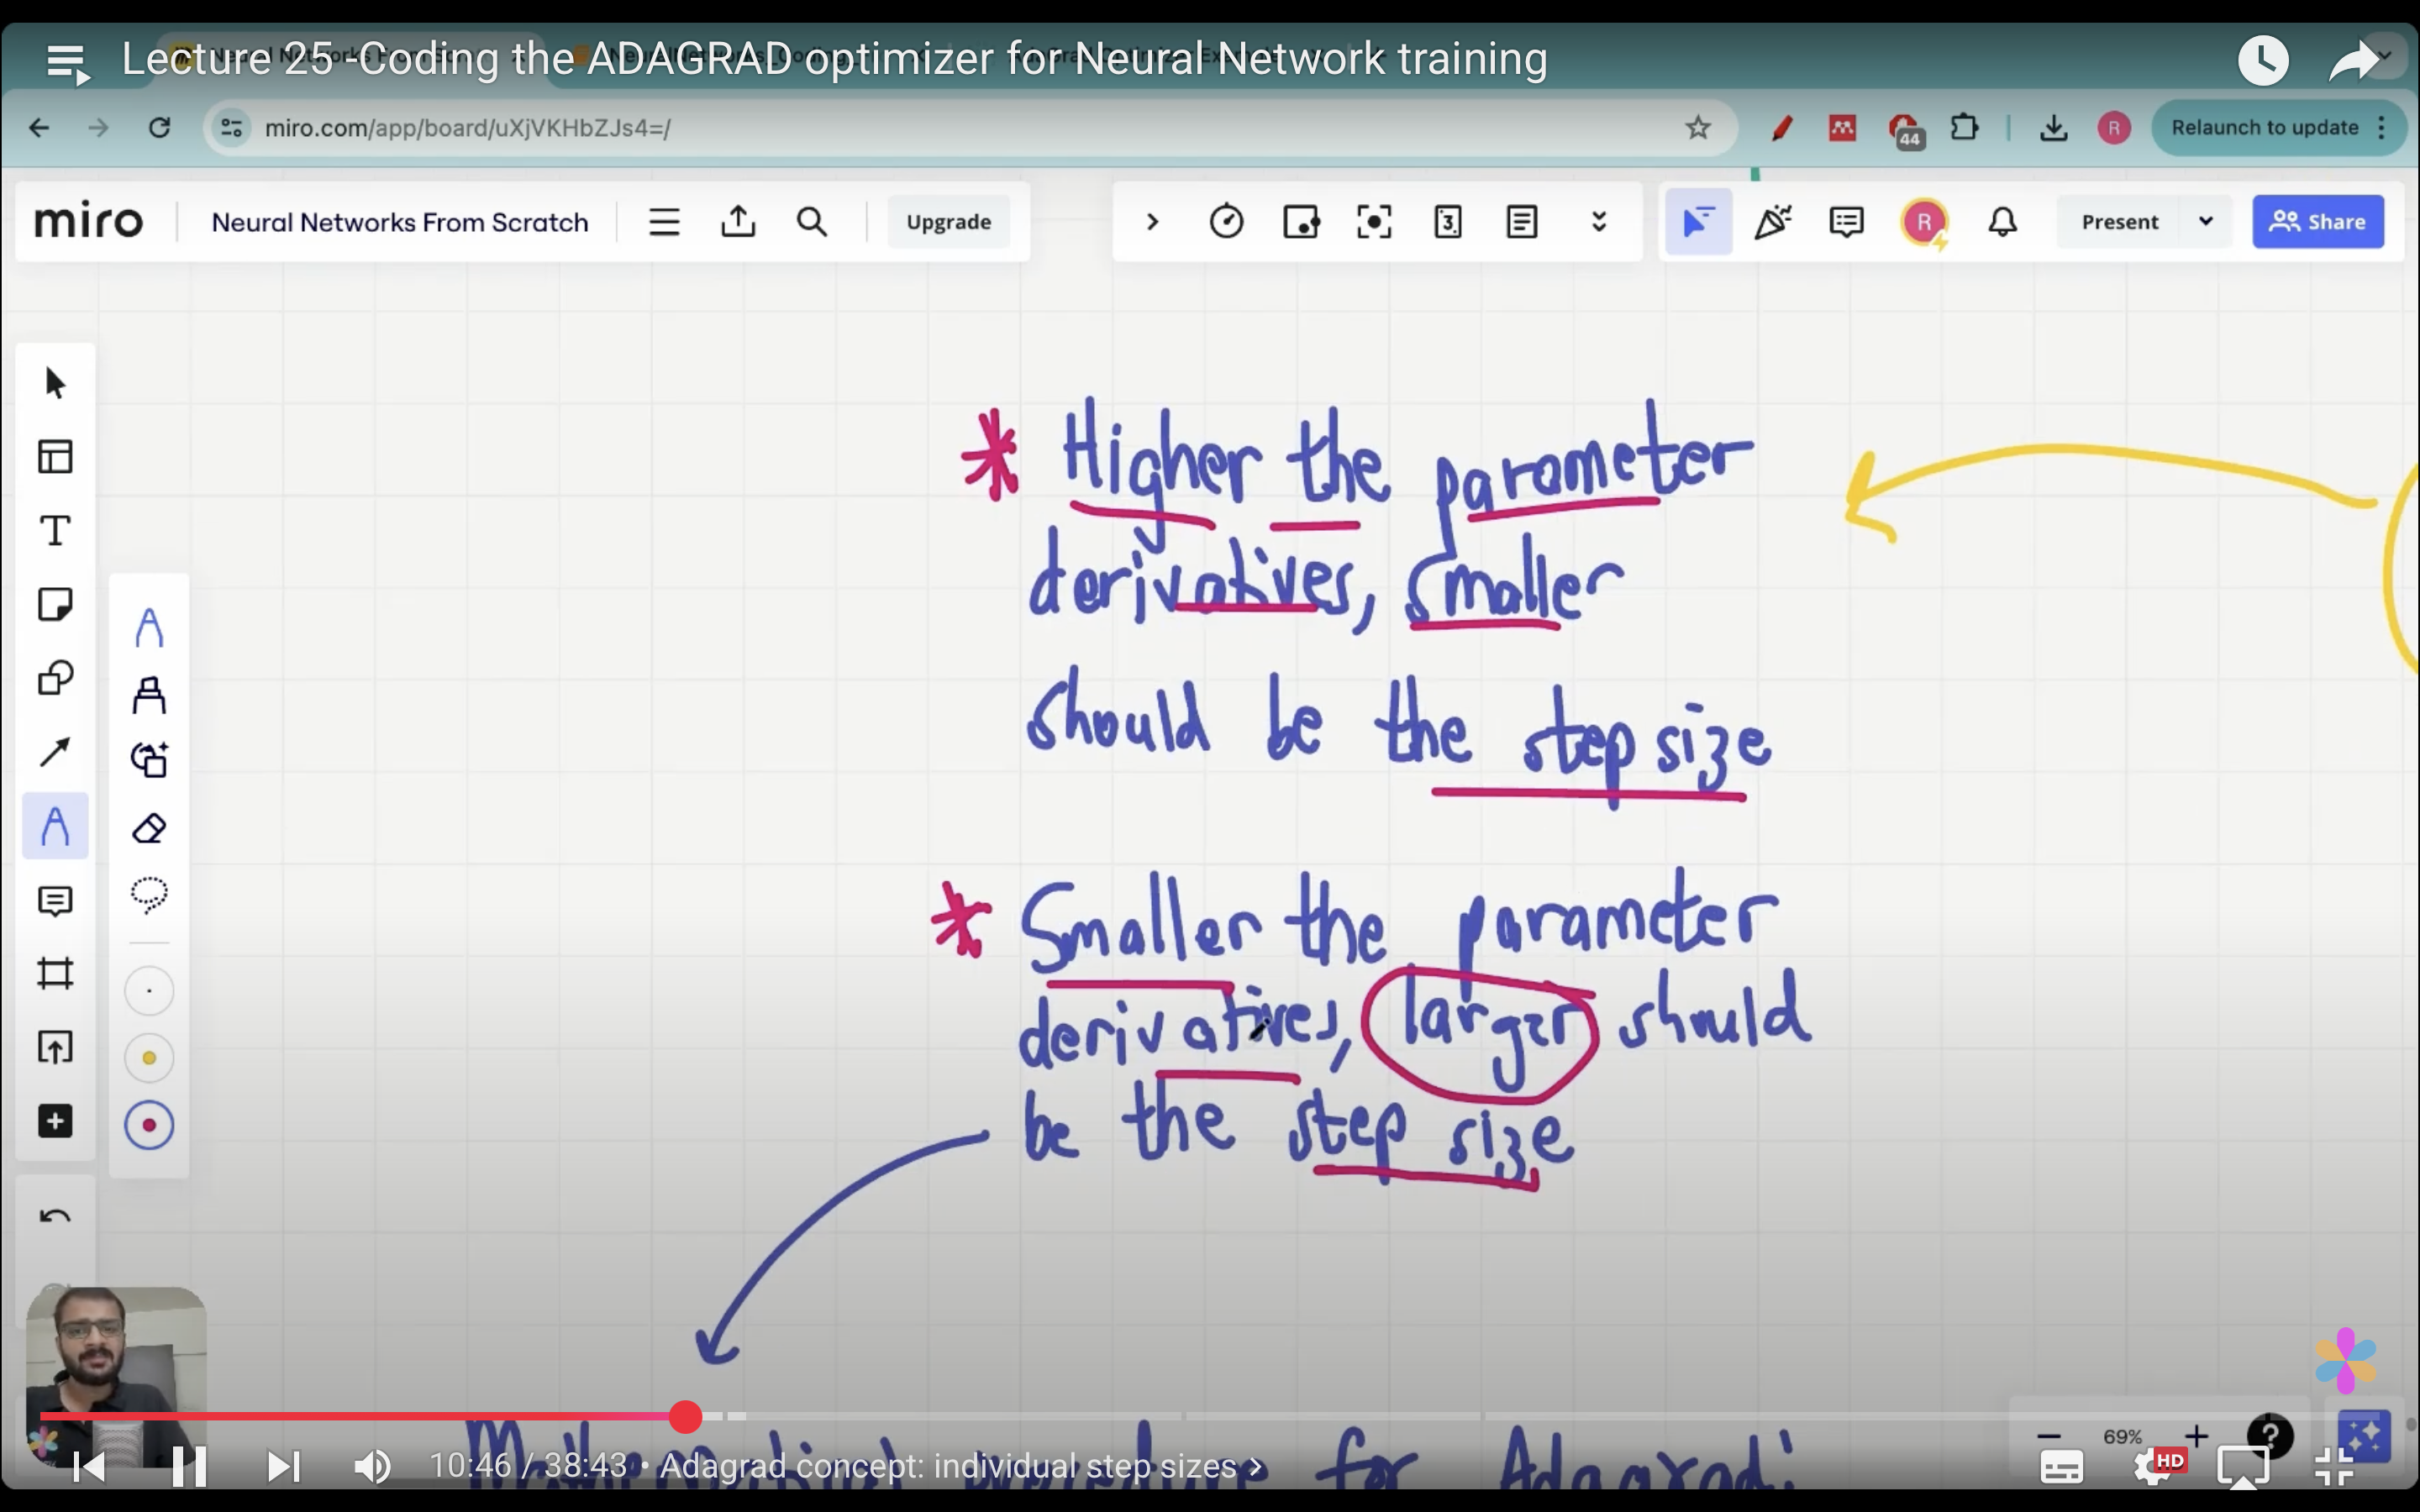 Lecture 25 -Coding the ADAGRAD optimizer for Neural Network training
miro.com/app/board/uXjVKHbZJs4=/
44
R
Relaunch to update
miro
Neural Networks From Scratch
Upgrade
3
R
Present
Share
* Higher the parameter
derivatives, smaller
should be the step size
* Smaller the parameter
derivatives, larger should
be the step size
Mathematical procedure for Adagrad:
69%
?
10:46 / 38:43 • Adagrad concept: individual step sizes >
HD